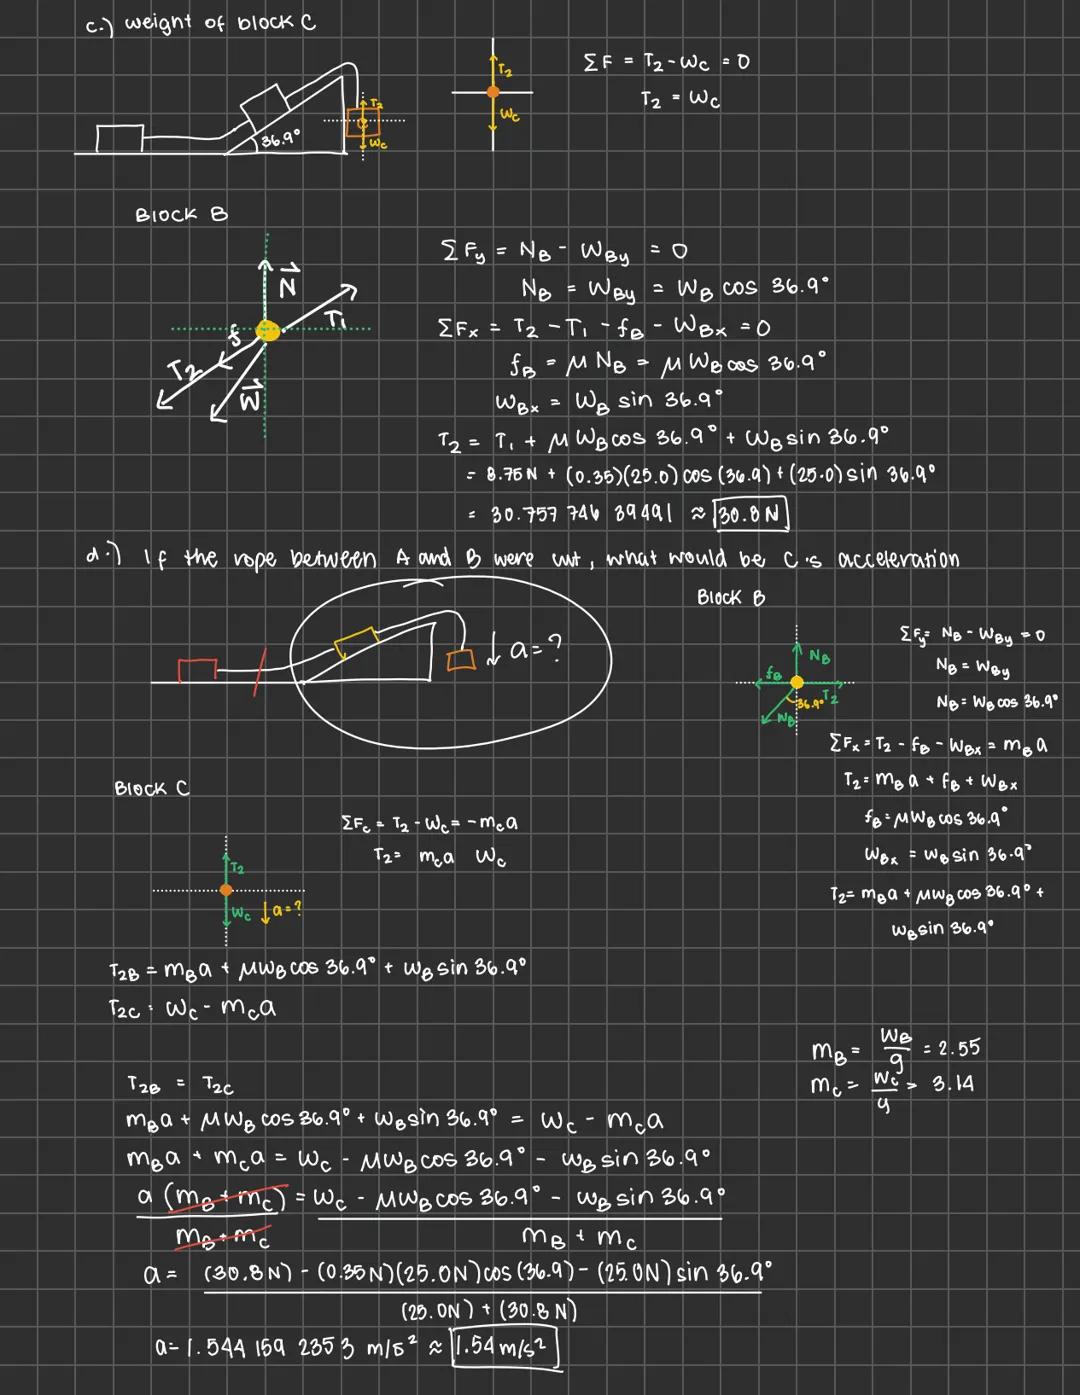 c.) weight of block C
36.9°
T2
Wc
T2
Wc
ΣF = T2 - Wc = 0
T2 = Wc
Block B
N
T1
f
T2
W
ΣFy = NB - WBy = 0
NB = WBy = WB cos 36.9°
ΣFx = T2 - T1 - fB - WBx = 0
fB = μ NB = μ WB cos 36.9°
WBx = WB sin 36.9°
T2 = T1 + μ WB cos 36.9° + WB sin 36.9°
= 8.75 N + (0.35)(25.0) cos (36.9) + (25.0) sin 36.9°
= 30.757 746 39491 ≈ 30.8 N
d.) If the rope between A and B were cut, what would be C's acceleration
↓ a = ?
Block B
NB
fB
36.9°
T2
WB
ΣFy = NB - WBy = 0
NB = WBy
NB = WB cos 36.9°
ΣFx = T2 - fB - WBx = mB a
T2 = mB a + fB + WBx
fB = μWB cos 36.9°
WBx = WB sin 36.9°
T2 = mBa + μWB cos 36.9° +
WB sin 36.9°
Block C
T2
Wc
↓ a = ?
ΣFc = T2 - Wc = -mca
T2 = mca Wc
T2B = mBa + μWB cos 36.9° + WB sin 36.9°
T2C = Wc - mca
mB = WB/g = 2.55
mc = Wc/g = 3.14
T2B = T2C
mBa + μWB cos 36.9° + WB sin 36.9° = Wc - mca
mBa + mca = Wc - μWB cos 36.9° - WB sin 36.9°
a (mB + mc) = Wc - μWB cos 36.9° - WB sin 36.9°
mB + mc mB + mc
a = (30.8 N) - (0.35 N)(25.0 N) cos (36.9) - (25.0 N) sin 36.9°
(25.0 N) + (30.8 N)
a = 1.544 159 2353 m/s² ≈ 1.54 m/s²